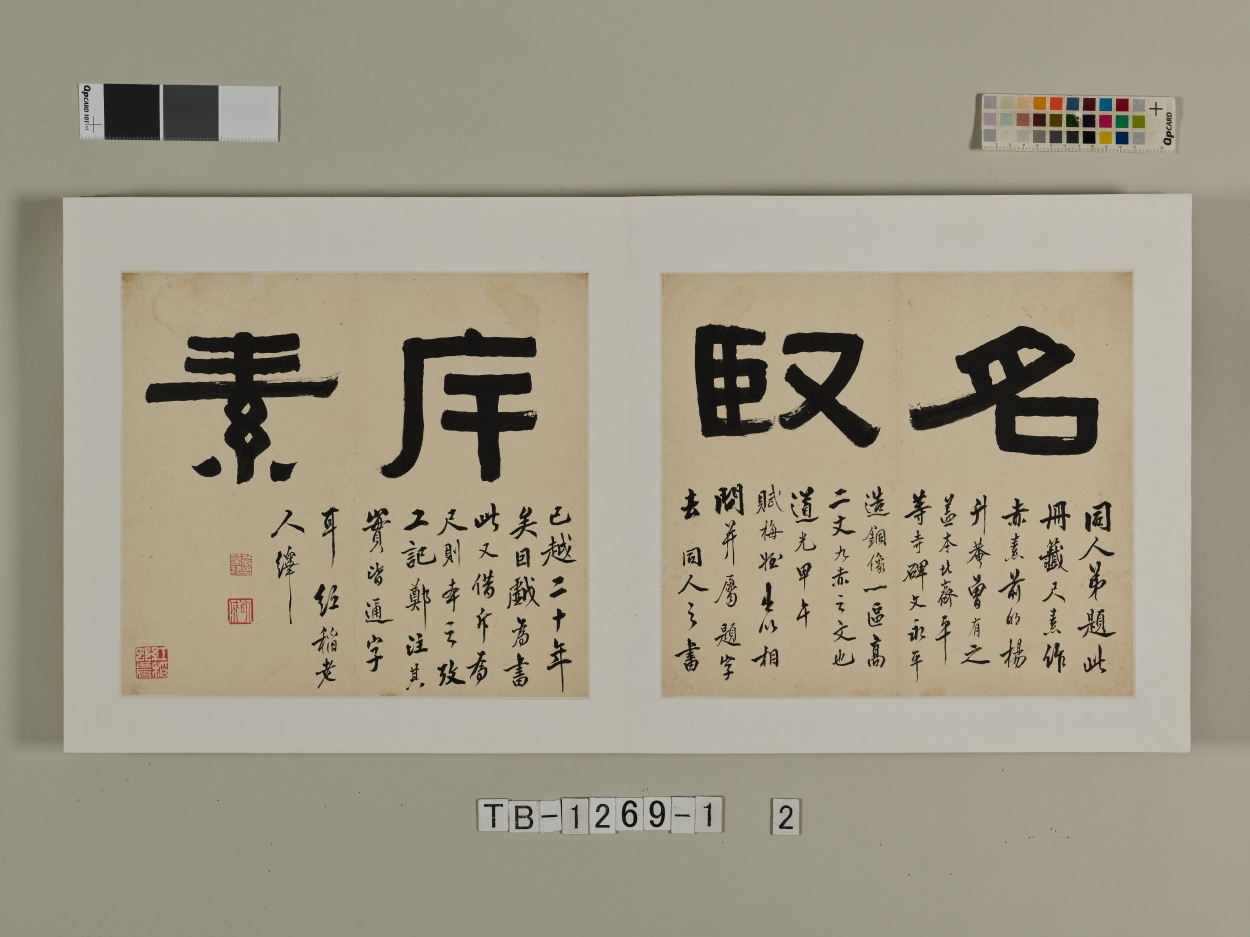 名臤
斥素
同人弟題此
冊籤尺素作
赤素前的楊
升菴曽有之
葢本北齊平
等寺碑文永平
造銅像一區高
二丈九赤之文也
道光甲午
賦梅姪生以相
問并屬題字
去同人之書
已越二十年
矣因戲為書
此又借斥為
尺則本之攷
工記鄭注其
實皆通字
耳 老
人繹
QPCARD 101
QPCARD 201
TB-1269-1 2